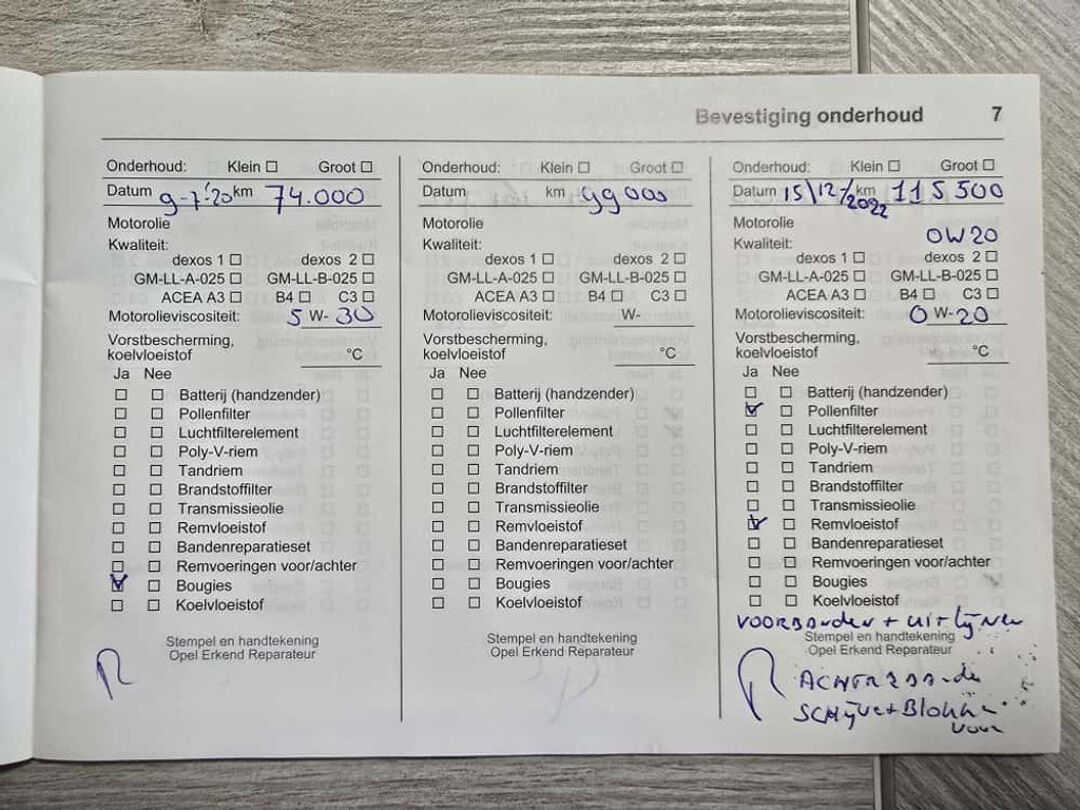 Bevestiging onderhoud 7
Onderhoud: Klein ☐ Groot ☐
Datum 9-7-'20 km 74.000
Motorolie
Kwaliteit:
dexos 1 ☐ dexos 2 ☐
GM-LL-A-025 ☐ GM-LL-B-025 ☐
ACEA A3 ☐ B4 ☐ C3 ☐
Motorolieviscositeit: 5 W- 30
Vorstbescherming,
koelvloeistof °C
Ja Nee
☐ ☐ Batterij (handzender)
☐ ☐ Pollenfilter
☐ ☐ Luchtfilterelement
☐ ☐ Poly-V-riem
☐ ☐ Tandriem
☐ ☐ Brandstoffilter
☐ ☐ Transmissieolie
☐ ☐ Remvloeistof
☐ ☐ Bandenreparatieset
☐ ☐ Remvoeringen voor/achter
☑ ☐ Bougies
☐ ☐ Koelvloeistof
Stempel en handtekening
Opel Erkend Reparateur
Onderhoud: Klein ☐ Groot ☐
Datum km 99000
Motorolie
Kwaliteit:
dexos 1 ☐ dexos 2 ☐
GM-LL-A-025 ☐ GM-LL-B-025 ☐
ACEA A3 ☐ B4 ☐ C3 ☐
Motorolieviscositeit: W-
Vorstbescherming,
koelvloeistof °C
Ja Nee
☐ ☐ Batterij (handzender)
☐ ☐ Pollenfilter
☐ ☐ Luchtfilterelement
☐ ☐ Poly-V-riem
☐ ☐ Tandriem
☐ ☐ Brandstoffilter
☐ ☐ Transmissieolie
☐ ☐ Remvloeistof
☐ ☐ Bandenreparatieset
☐ ☐ Remvoeringen voor/achter
☐ ☐ Bougies
☐ ☐ Koelvloeistof
Stempel en handtekening
Opel Erkend Reparateur
Onderhoud: Klein ☐ Groot ☐
Datum 15/12/2022 km 115500
Motorolie
Kwaliteit: 0W20
dexos 1 ☐ dexos 2 ☐
GM-LL-A-025 ☐ GM-LL-B-025 ☐
ACEA A3 ☐ B4 ☐ C3 ☐
Motorolieviscositeit: 0 W-20
Vorstbescherming,
koelvloeistof °C
Ja Nee
☐ ☐ Batterij (handzender)
☑ ☐ Pollenfilter
☐ ☐ Luchtfilterelement
☐ ☐ Poly-V-riem
☐ ☐ Tandriem
☐ ☐ Brandstoffilter
☐ ☐ Transmissieolie
☑ ☐ Remvloeistof
☐ ☐ Bandenreparatieset
☐ ☐ Remvoeringen voor/achter
☐ ☐ Bougies
☐ ☐ Koelvloeistof
VOORBANDEN + UITLIJNEN
Stempel en handtekening
Opel Erkend Reparateur
ACHTERBANDEN
SCHIJVEN + BLOKKEN
VOOR